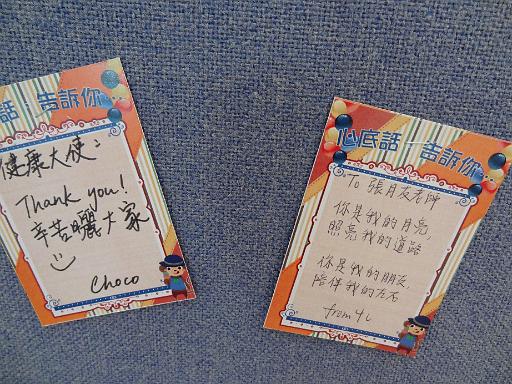 話 告訴你
健康大使：
Thank you!
辛苦囉大家
Choco
心底話 告訴你
To 張月友老師
你是我的月亮
照亮我的道路
你是我的朋友
陪伴我的左右
from